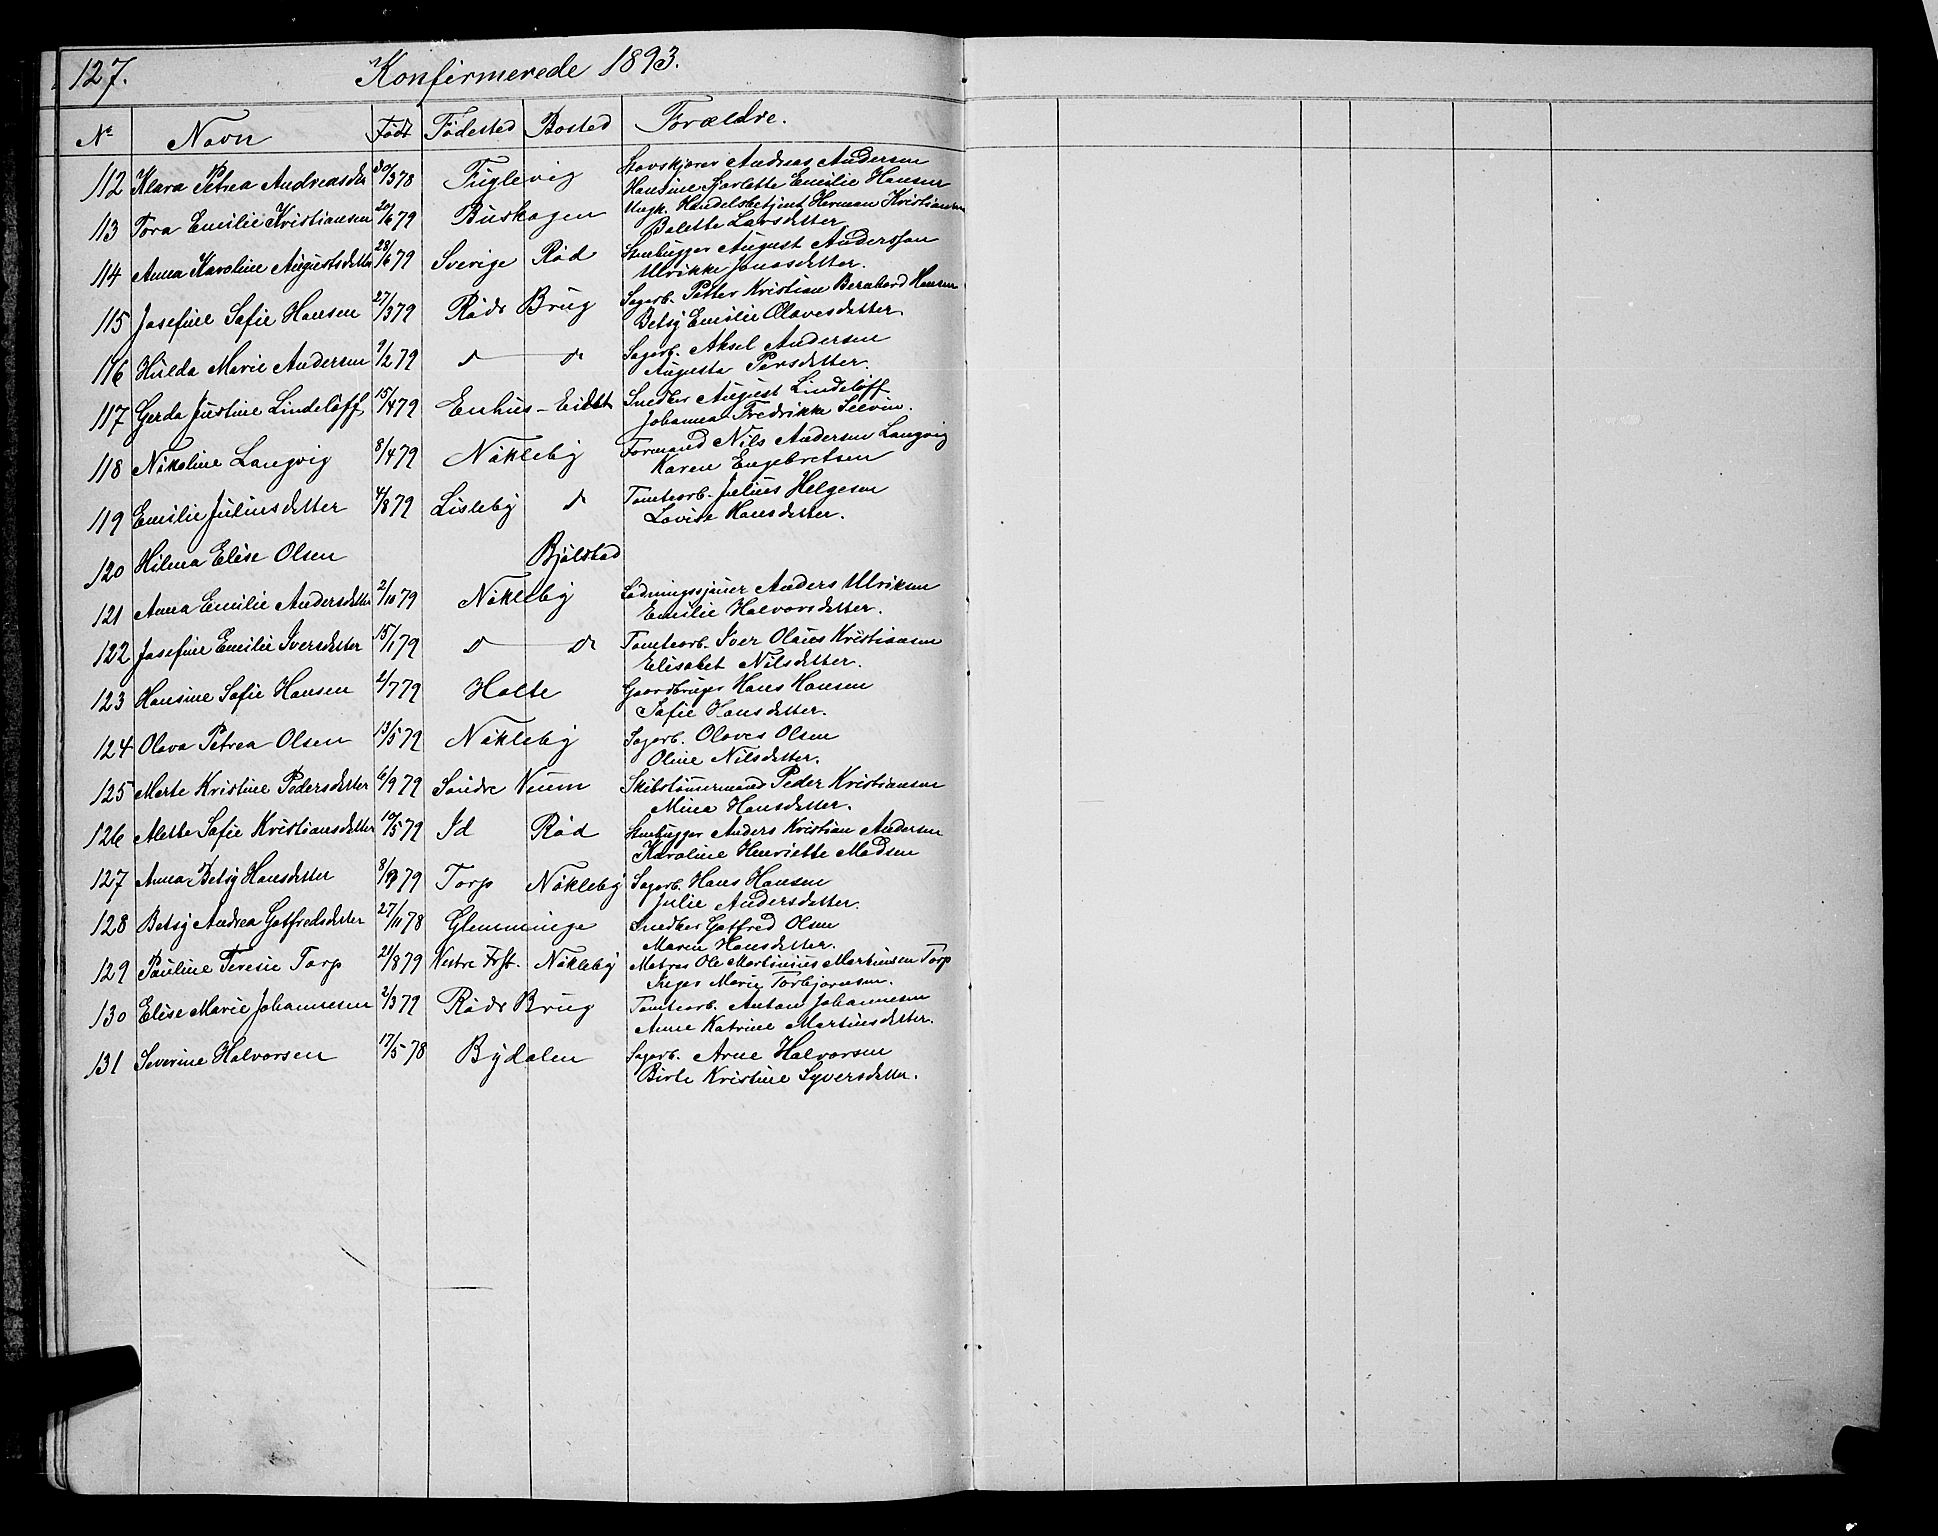 127. Konfirmerede 1893.
No Navn Født Fødested Bosted Forældre.
112 Klara Petrea Andreasdtr 30/3 78 Fuglevig Stavskjører Andreas Andersen
Hansine Sjarlotte Emilie Hansen
113 Tora Emilie Kristiansen 20/6 79 Buskogen Ungk. Handelsbetjent Herman Kristiansen
Bolette Larsdatter
114 Anna Karoline Augustsdatter 28/6 79 Sverige Rød Stenhugger August Andersson
Ulrikke Jonasdatter.
115 Josefine Sofie Hansen 27/3 79 Røds Brug Sagarb. Petter Kristian Bernhard Hansen
Betsy Emilie Olavesdatter
116 Hulda Marie Andersen 9/2 79 do do Sagarb. Aksel Andersen
Augusta Persdatter.
117 Gerda Justine Lindeløff 15/4 79 Enhus - Eidet Snedker August Lindeløff
Johanna Fredrikke
118 Nikoline Langvig 8/4 79 Nökleby Formand Nils Andersen Langvig
Karen Engebretsen
119 Emilie Juliusdatter 4/8 79 Lisleby do Tomtearb. Julius Helgesen
Lovise Hansdatter.
120 Hilma Elise Olsen Bjølstad
121 Anna Emilie Andersdatter 2/10 79 Nökleby Anders Ulriksen
Emilie Halvorsdatter.
122 Josefine Emilie Iversdatter 15/1 79 do do Tomtearb. Iver Olaus Kristiansen
Elisabet Nilsdatter.
123 Hansine Sofie Hansen 2/7 79 Holte Gaardbruger Hans Hansen
Sofie Hansdatter.
124 Olava Petrea Olsen 13/5 79 Nökleby Sagarb. Olaves Olsen
Oline Nilsdatter.
125 Marte Kristine Pedersdatter 6/9 79 Söndre Veum Skibstömmermand Peder Kristiansen
Mina Hansdatter.
126 Alette Sofie Kristiansdatter 10/5 79 Id Rød Stenhugger Anders Kristian Andersen
Karoline Henriette Madsen
127 Anna Betsy Hansdatter 8/9 79 Torp Nökleby Sagarb. Hans Hansen
Julie Andersdatter.
128 Betsy Andrea Gotfredsdatter 27/11 78 Glemminge Snedker Gotfred Olsen
Maren Hansdatter.
129 Pauline Teresie Torp 21/8 79 Vestre Frst. Nökleby Matros Ole Martinius Martinsen Torp
Inger Marie Torbjørnsen.
130 Elise Marie Johannesen 2/3 79 Røds Brug Tomtearb. Anton Johannesen
Anne Katrine Martinsdatter.
131 Severine Halvorsen 17/5 78 Bydalen Sagarb. Arne Halvorsen
Birte Kristine Syversdatter.